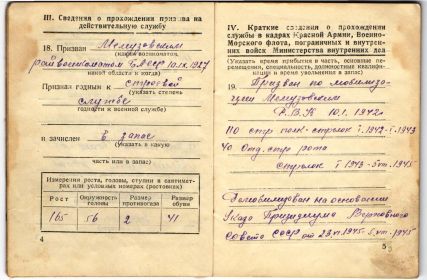 III. Сведения о прохождении призыва на
действительную службу
18. Призван Мелеузовским
(каким военкоматом,
райвоенкоматом БАССР 10.IX.1927
какой области и когда)
Признан годным к строевой
(указать степень
службе
годности к военной службе)
и зачислен в запас
(указать в какую
часть или в запас)
Измерения роста, головы, ступни в сантимет-
рах или условных номерах (ростовках)
Рост Окружность головы Размер противогаза Размер обуви
165 56 2 41
4
IV. Краткие сведения о прохождении
службы в кадрах Красной Армии, Военно-
Морского флота, пограничных и внутрен-
них войск Министерства внутренних дел
(Указать время прибытия в часть, основное пере-
мещения, специальность, должностные квалифи-
кации и время увольнения в запас)
19. Призван по мобилиза-
ции Мелеузовским
Р.В.К 10.1.1942г
110 стр полк-стрелок I.1942-I.1943
40 отд. стр рота
стрелок I 1943-5.VII.1945
Демобилизован на основании
Указа Президиума Верховного
Совета СССР от 23.VI.1945-5.VII.1945
5